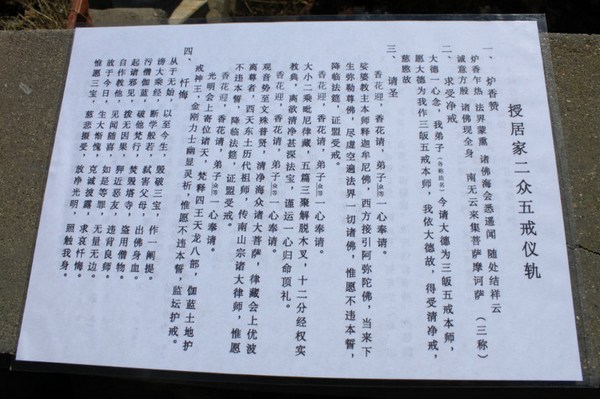 授居家二众五戒仪轨
一、炉香赞
炉香乍热 法界蒙熏 诸佛海会悉遥闻 随处结祥云
诚意方殷 诸佛现全身 南无云来集菩萨摩诃萨（三称）
二、求受净戒
大德一心念，我弟子（各称姓名）今请大德为三皈五戒本师，
愿大德为我作三皈五戒本师，我依大德故，得受清净戒，
慈愍故
三、请圣
香花迎，香花请，弟子众等一心奉请。
娑婆教主本师释迦牟尼佛，西方接引阿弥陀佛，当来下
生弥勒尊佛，尽虚空遍法界一切诸佛，惟愿不违本誓，
降临法筵，证盟受戒。
香花迎，香花请，弟子众等一心奉请。
大小二乘毗尼律藏，五篇三聚解脱木叉，十二分经权实
教典，离欲清净甚深法宝，谨运一心归命顶礼。
香花迎，香花请，弟子众等一心奉请。
观音势至文殊普贤，清净海众诸大菩萨，律藏会上优波
离尊者，西天东土历代祖师，传南山宗诸大律师，惟愿
不违本誓，降临法筵，证盟受戒。
香花迎，香花请，弟子众等一心奉请。
光明会上寄位诸天，梵释四王天龙八部，伽蓝土地护
戒神王，金刚力士幽显灵祈，惟愿不违本誓，监坛护戒。
四、忏悔
从于无始，以至今生，毁破三宝，作一阐提。
谤大乘经，断学般若，弑害父母，出佛身血。
污僧伽蓝，破他梵行，焚毁塔寺，盗用僧物。
起诸邪见，拨无因果，狎近恶友，违背良师。
自作教他，见闻随喜，如是等罪，无量无边。
故于今日，生大惭愧，克诚披露，求哀忏悔。
惟愿三宝，慈悲摄受，放净光明，照触我身。